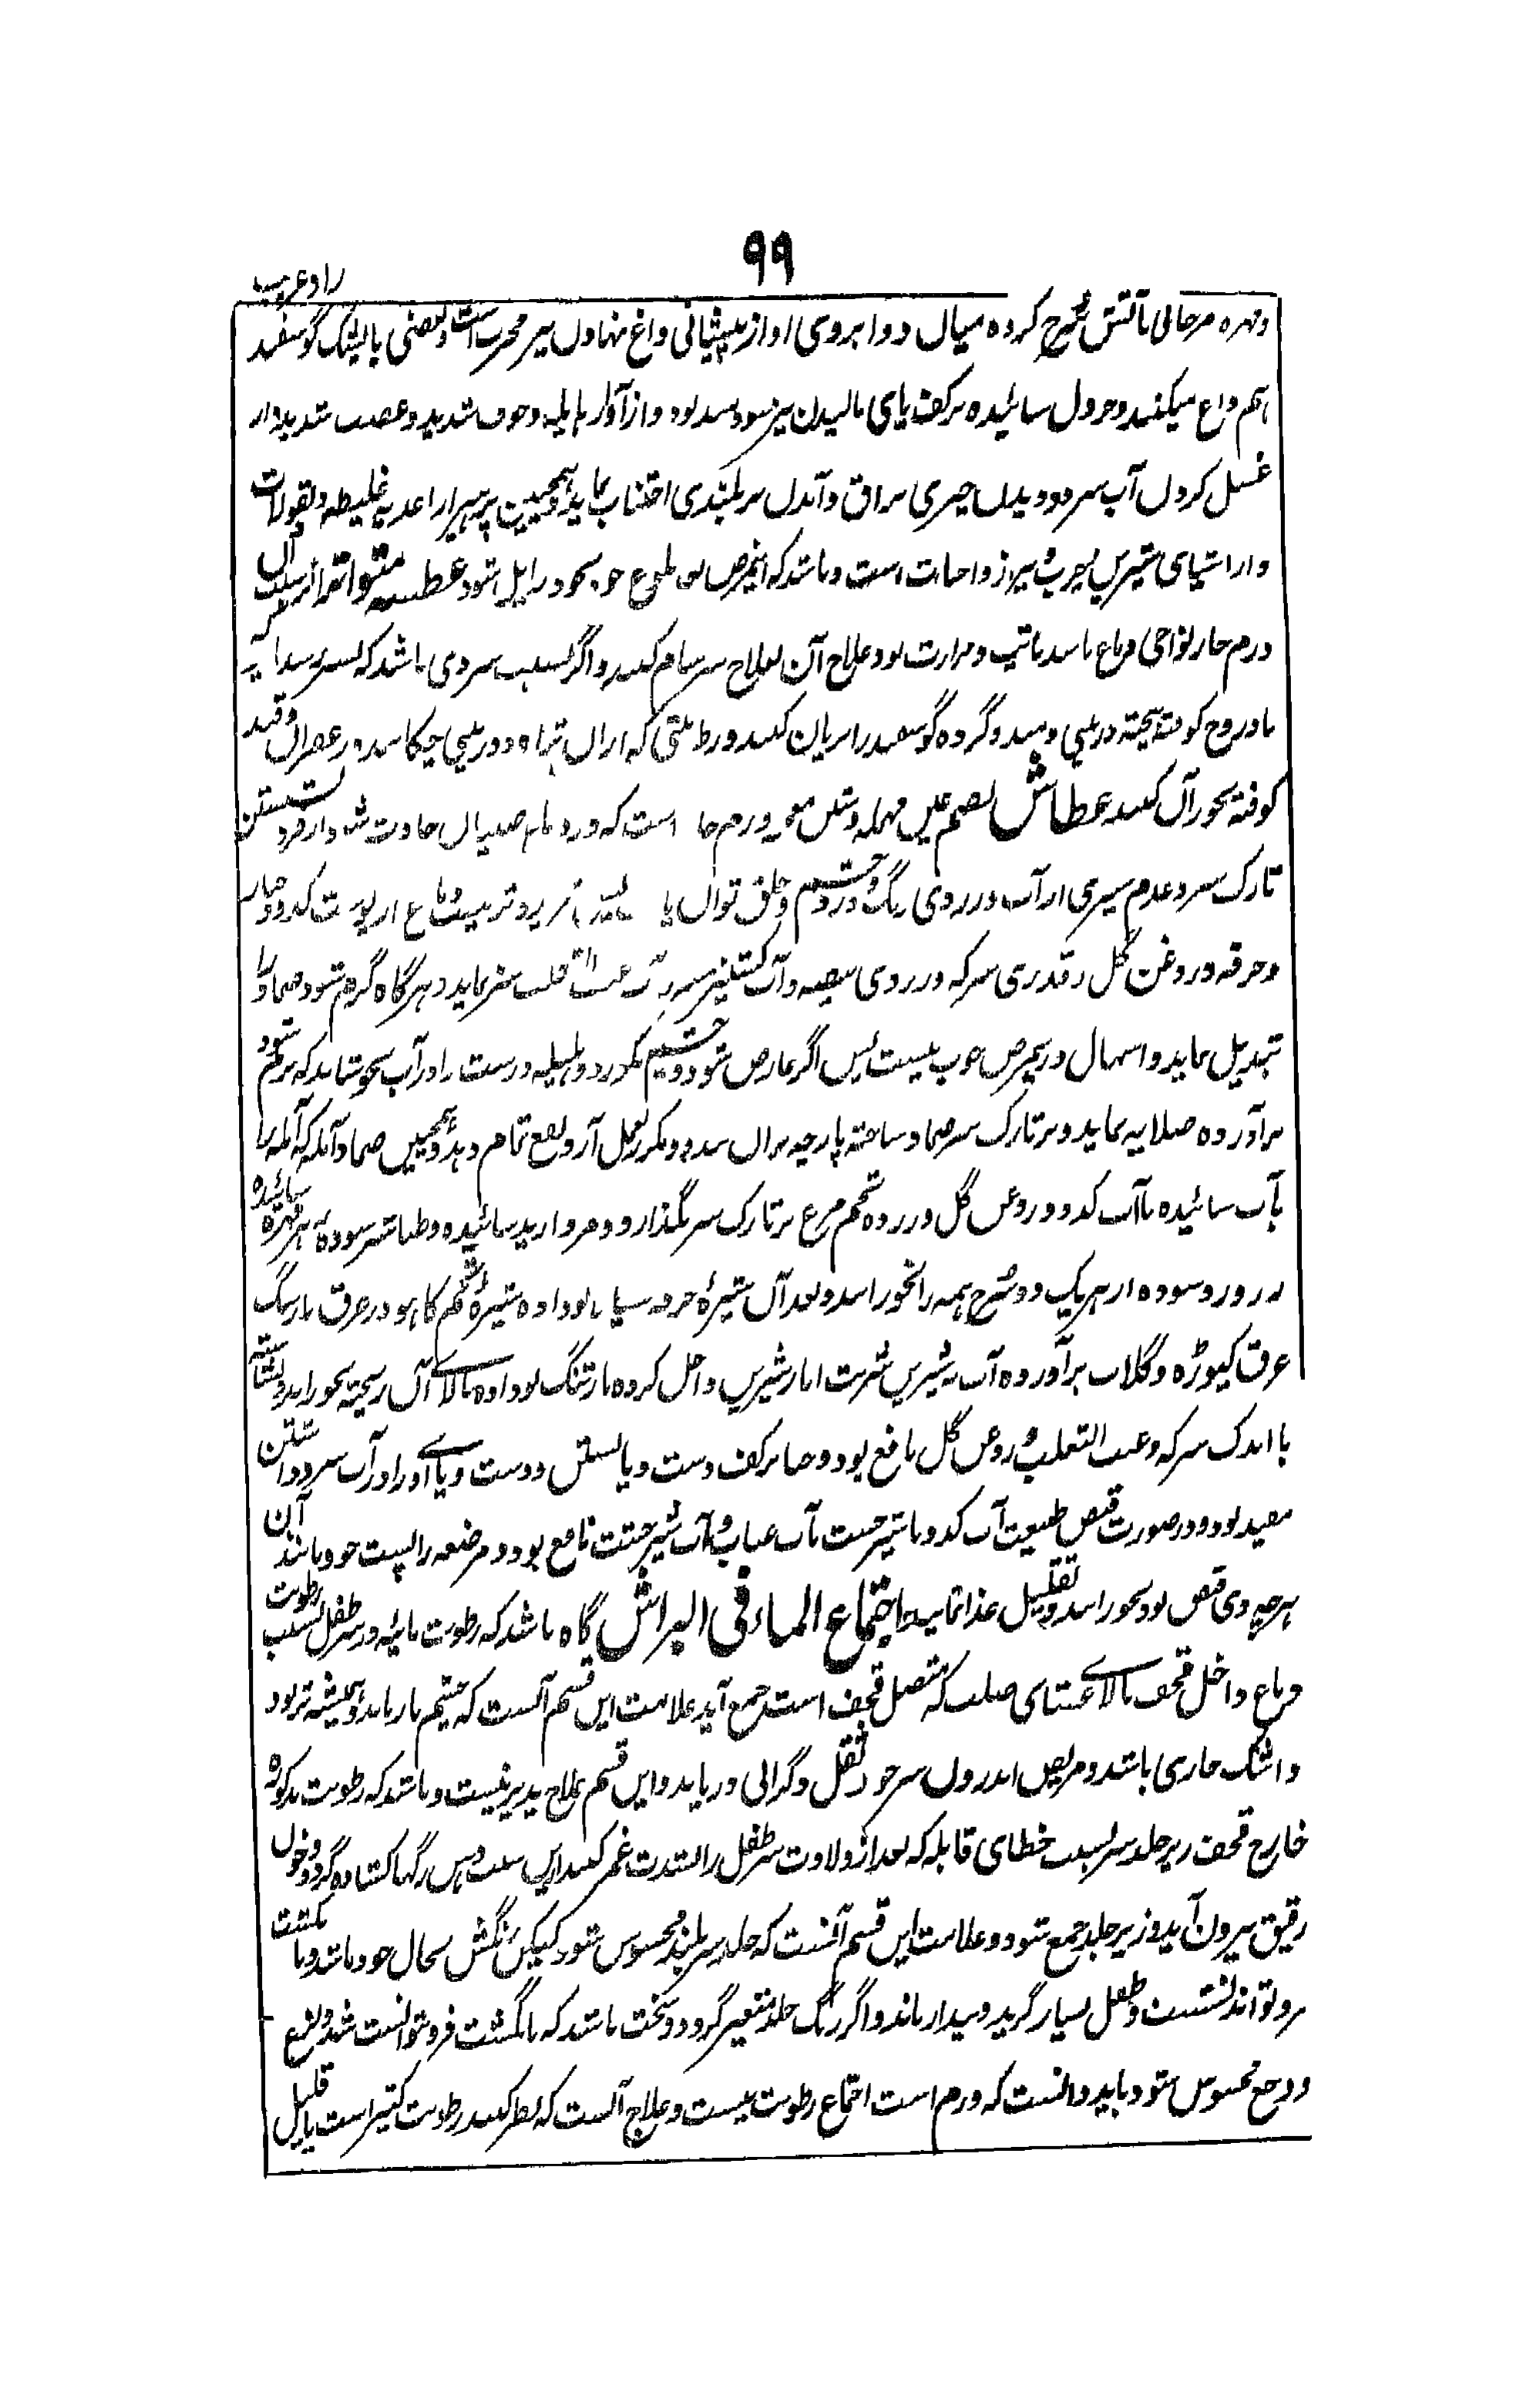 ۹۹
زاد غریب
ومهره مرجانی بآتش سرخ کرده میان دو ابروی او از پیشانی داغ نهادن نیز مجرب است و بعضی با پشک گوسفند
هم داغ میکنند و خردل سائیده بر کف پای مالیدن نیز سودمند بود و از آواز هایله و خوف شدید و غضب شدید و از
غسل کردن آب سرد و دیدن چیزی براق و آمدن بر بلندی اجتناب نماید و همچنین پرهیز از اغذیه غلیظه و بقولات
و از اشیای شیرین و چرب نیز از واجبات است و باشد که اینمرض بعد بلوغ خود بخود زایل شود عطسه متواتر از سبب آن
ورم حار نواحی دماغ باشد با تب و حرارت بود علاج آن بعلاج سرسام کنند و اگر بسبب سردی باشد که بسر رسد
بادروج کوفته بیخته در بینی دمند و گرده گوسفند را بریان کنند و رطوبتی که از آن تراود در بینی چکانند و زعفران و قند
کوفته بخورانند عطاش بضم عین مهمله و شین معجمه ورم حار است که در دماغ صبیان حادث شود از فرو نشستن
تارک سر و عدم سیری از آب و زردی رنگ و درد چشم و حلق توان یافت تبرید و ترطیب دماغ از پوست کدو و خیار
و خرفه و روغن گل و قدری سرکه و زردی بیضه و آب کشنیز سبز و آب عنب الثعلب نماید و هرگاه گرم شود ضماد را
تبدیل نماید و اسهال درینمرض خوب نیست پس اگر عارض شود و چشم بگردد هلیله درست را در آب بجوشانند که نرم شود
برآورده صلایه نماید و بر تارک سر ضماد ساخته پارچه بران بندد و مکرر بعمل آرد نفع تمام دهد و همچنین ضماد آمله که آمله را
بآب سائیده با آب کدو و روغن گل و زرده تخم مرغ بر تارک سر بگذارد و مروارید سائیده و طباشیر سوده زهرمهره سائیده
زرورد سوده از هر یک دو سرخ همه را بخورانند و بعد آن شیره خرفه سیاه بو داده شیره تخم کاهو در عرق بارتنگ
عرق کیوڑه و گلاب برآورده آب شیرین شربت انار شیرین داخل کرده بارتنگ بو داده بالای آن ریخته بخورانند و نشاسته
با اندک سرکه و عنب الثعلب و روغن گل نافع بود و حنا بر کف دست و پا بستن و دست و پای او را در آب سرد داشتن
مفید بود و در صورت قبض طبیعت آب کدو با شیرخشت یا آب عناب و آب شیرخشت نافع بود و مرضعه را پست جو و مانند آن
هرچه دری قبض بود بخورانند و تقلیل غذا نماید اجتماع الماء فی الراس گاه باشد که رطوبت مائیه در سر طفل بسبب رطوبت
دماغ داخل قحف بالای غشای صلب که متصل قحف است جمع آید علامت این قسم آنست که چشم باز ماند و همیشه تر بود
و اشک جاری باشد و مریض اندرون سر خود ثقل و گرانی دریابد و این قسم علاج پذیر نیست و باشد که رطوبت مذکوره
خارج قحف زیر جلد سر بسبب خطای قابله که بعد از ولادت سر طفل را بشدت غمز کند ازین سبب دهن رگها کشاده گردد و خون
رقیق بیرون آید و زیر جلد جمع شود و علامت این قسم آنست که جلد سر بلند محسوس شود لیکن رنگش بحال خود باشد و بانگشت
فرو تواند نشست و طفل بسیار گرید و بیدار ماند و اگر رنگ جلد متغیر گردد و سخت باشد که بانگشت فرو نتوانست شد و لذع
و وجع محسوس شود باید دانست که ورم است اجتماع رطوبت نیست و علاج آنست که نظر کنند رطوبت کثیر است یا قلیل